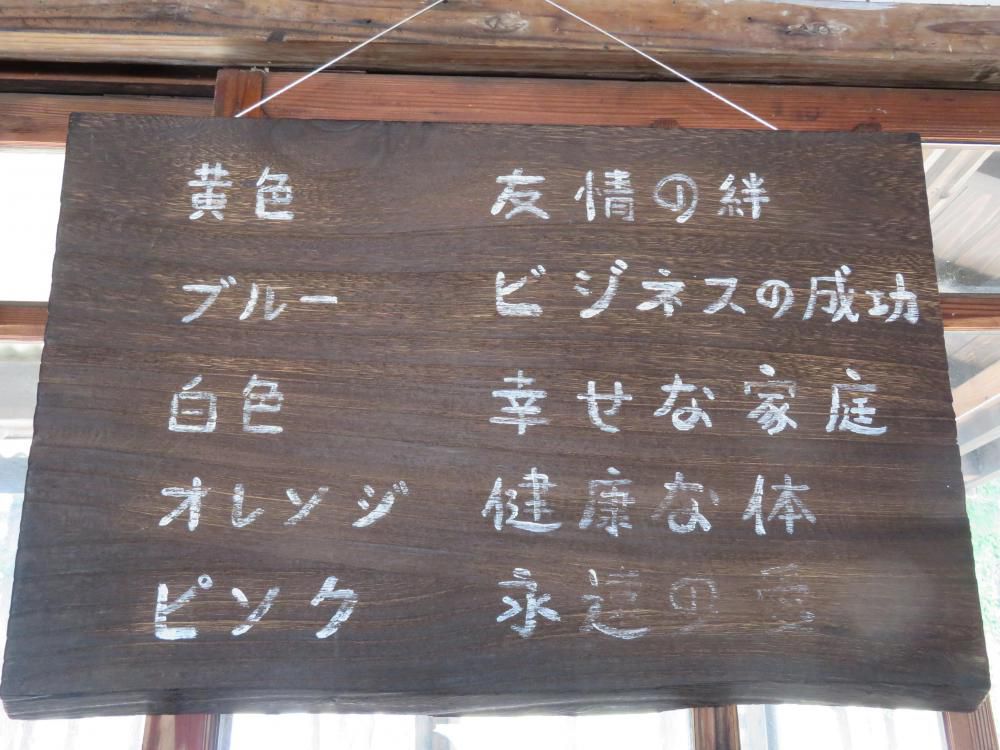 黄色 友情の絆
ブルー ビジネスの成功
白色 幸せな家庭
オレンジ 健康な体
ピンク 永遠の愛